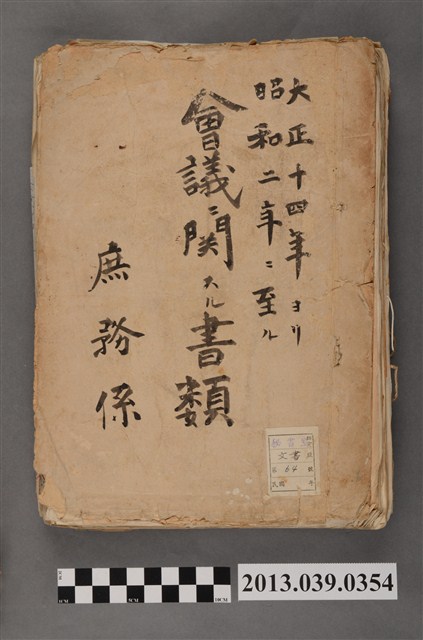 大正十四年ヨリ
昭和二年ニ至ル
會議ニ関スル書類
庶務係
文書
64
5CM
10CM
2013.039.0354